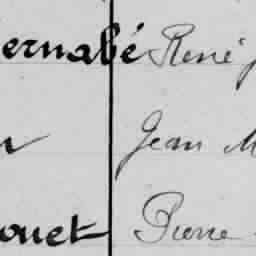 ernabé René
Jean M
ouet Pierre